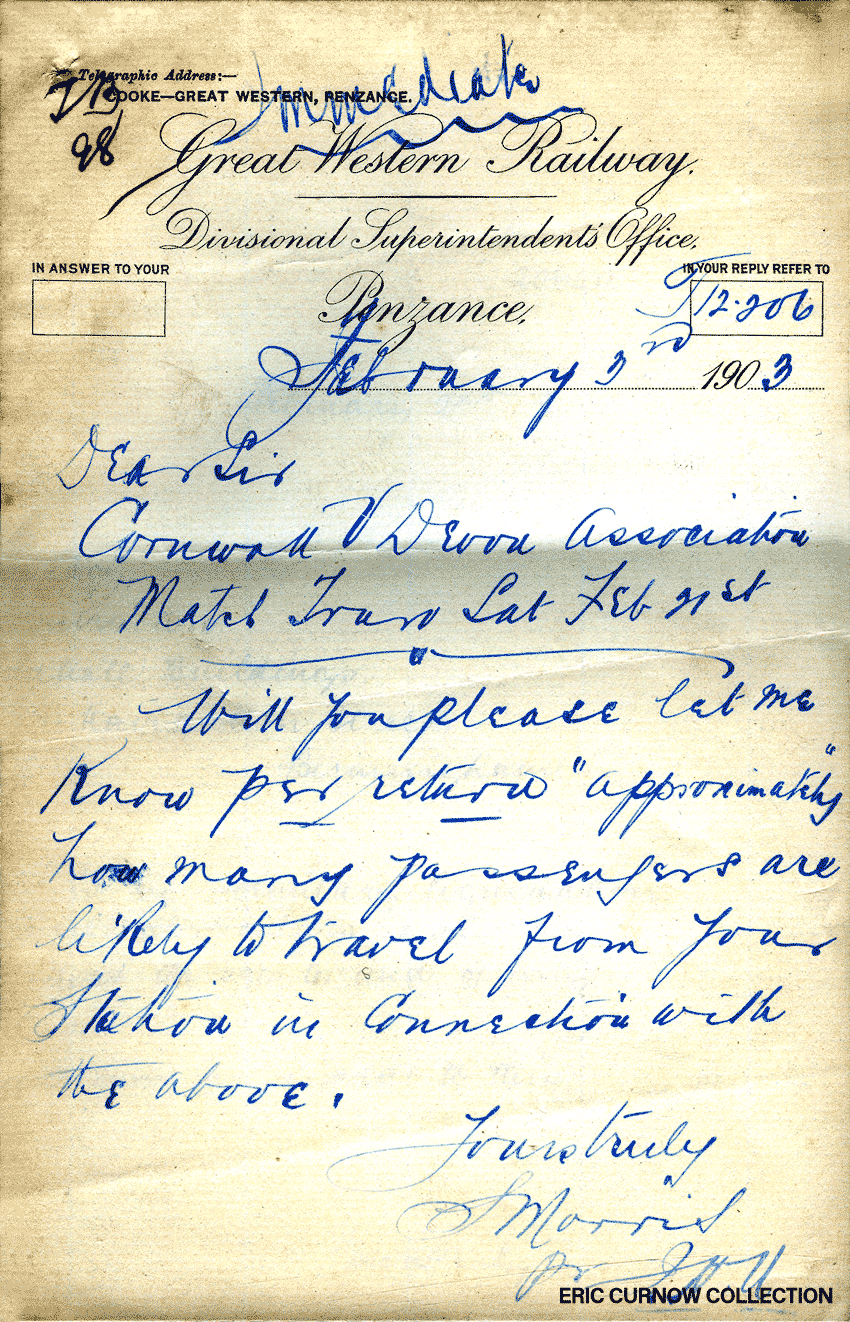 Telegraphic Address:—
COOKE—GREAT WESTERN, PENZANCE.
Immediate
98
Great Western Railway.
Divisional Superintendent's Office,
IN ANSWER TO YOUR
IN YOUR REPLY REFER TO
Penzance,
T12.206
February 3rd 1903
Dear Sir
Cornwall V Devon Association
Match Truro Sat Feb 21st
Will you please let me
know per return "approximately"
how many passengers are
likely to travel from your
Station in Connection with
the above.
Yours truly
S Morris
pr
ERIC CURNOW COLLECTION